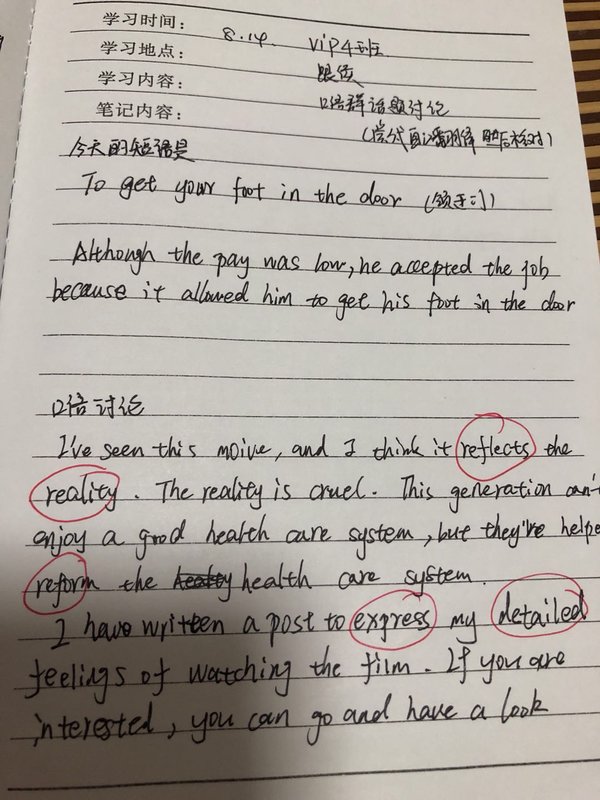 学习时间： 8.14. VIP4班
学习地点：
学习内容： 口语群话题讨论
笔记内容：
今天的短语是
To get your foot in the door
Although the pay was low, he accepted the job
because it allowed him to get his foot in the door
口语讨论
I've seen this moive, and I think it reflects the
reality. The reality is cruel. This generation can't
enjoy a good health care system, but they're helpe
reform the health care system.
I have written a post to express my detailed
feelings of watching the film. If you are
interested, you can go and have a look